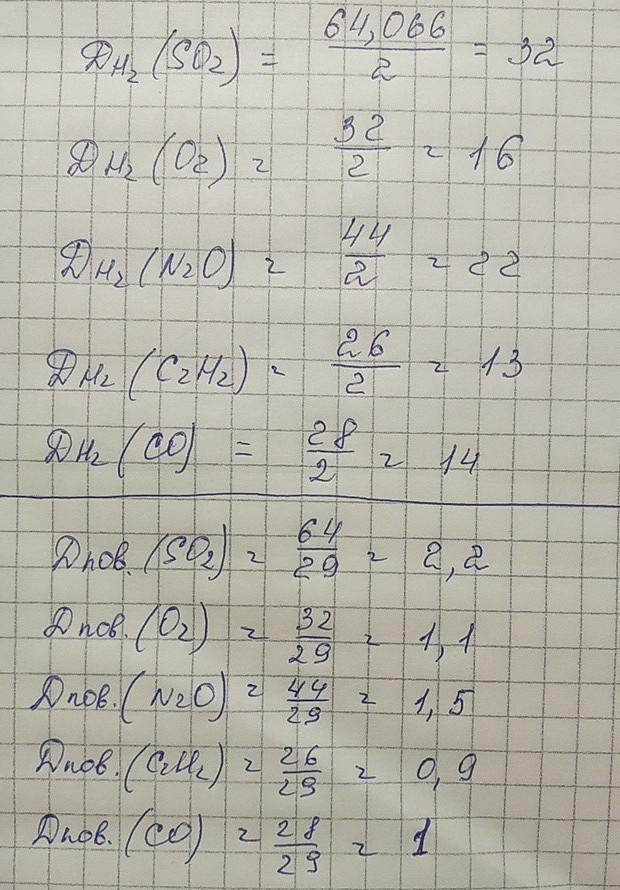 Dн₂(SO₂) = 64,066/2 = 32
Dн₂(O₂) = 32/2 = 16
Dн₂(N₂O) = 44/2 = 22
Dн₂(C₂H₂) = 26/2 = 13
Dн₂(CO) = 28/2 = 14
Dпов.(SO₂) = 64/29 = 2,2
Dпов.(O₂) = 32/29 = 1,1
Dпов.(N₂O) = 44/29 = 1,5
Dпов.(C₂H₂) = 26/29 = 0,9
Dпов.(CO) = 28/29 = 1